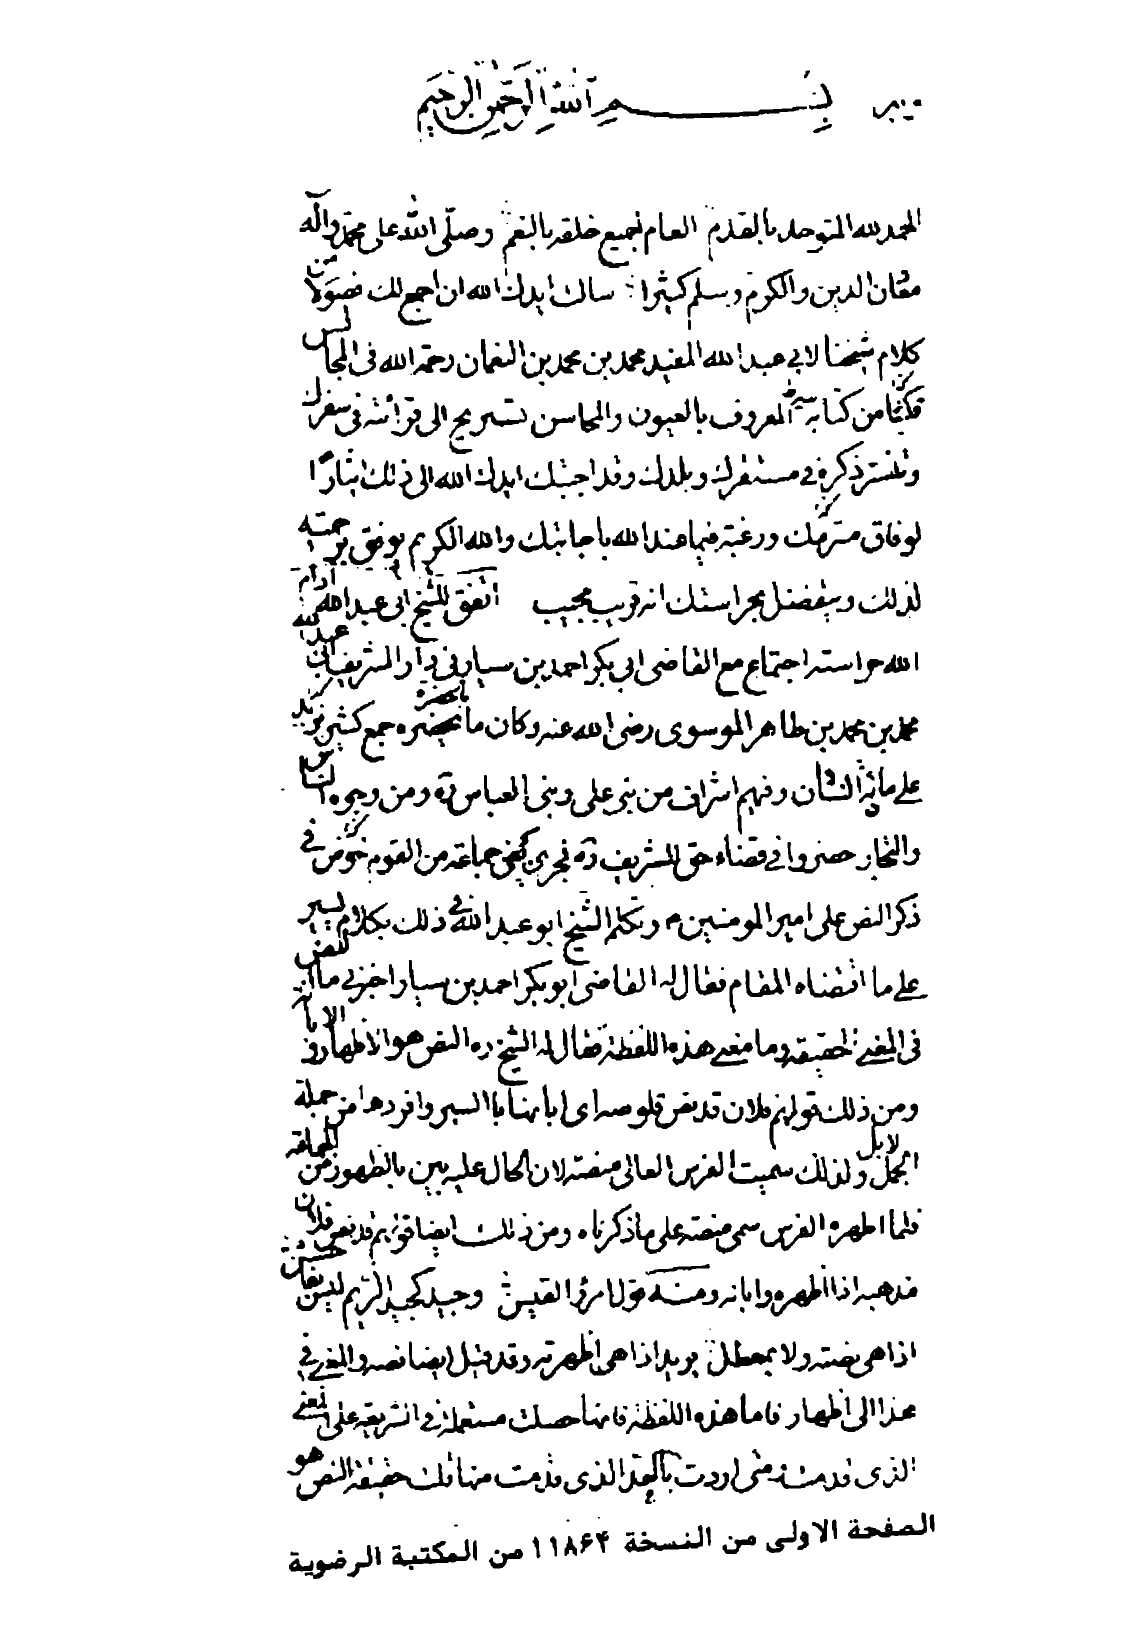 بسم الله الرحمن الرحيم
الحمد لله المتوحد بالقدم العام لجميع خلقه بالنعم وصلى الله على محمد وآله
معادن الدين والكرم وسلم كثيرا سالت ايدك الله ان اجمع لك فصولا من
كلام شيخنا لابي عبد الله المفيد محمد بن محمد بن النعمان رحمة الله في المجالس
من كتابه المعروف بالعيون والمحاسن تستريح الى قرائته في سفرك
ذكره في مستقرك وبلدك وقد اجبتك ايدك الله الى ذلك ايثارا
لوفاق مسرتك ورغبة فيما عند الله باجابتك والله الكريم يوفق برحمته
لذلك ويتفضل بحراستك انه قريب مجيب اتفق للشيخ ابي عبد الله ادام
الله حراسته اجتماع مع القاضي ابي بكر احمد بن سيار في دار الشريف ابي عبد الله
محمد بن محمد بن طاهر الموسوي رضي الله عنه وكان بالحضرة جمع كثير يزيد
على مائة انسان وفيهم اشراف من بني علي وبني العباس ره ومن وجوه الناس
والتجار حضروا في قضاء حق الشريف ره فجرى من جماعة من القوم خوض في
ذكر النص على امير المومنين م وتكلم الشيخ ابو عبد الله في ذلك بكلام يسير
على ما اقتضاه المقام فقال له القاضي ابو بكر احمد بن سيار اخبرني ما النص
في الحقيقة وما معنى هذه اللفظة فقال له الشيخ ره النص هو الاظهار والابانة
ومن ذلك قولهم فلان قد نص قلوصه اي ابانها بالسير وافردها من جملة
الابل ولذلك سميت الفرش العالي منصة لان الجال عليه يبين بالظهور من الجماعة
فلما اظهره الفرش سمى منصة على ما ذكرناه ومن ذلك ايضا قولهم قد نص فلان
مذهبه اذا اظهره وابانه ومنه قول امرؤ القيس وجيد كجيد الريم ليس بفاحش
اذا هي نصته ولا بمعطل يريد اذا هي اظهرته وقد قيل ايضا نصبه والمعنى في
هذا الى اظهار فاما هذه اللفظة فانها حصلت مستعملة في الشريعة على المعنى
الذي قدمت ومتى اردت الذي قدمت منها قلت حقيقة النص هو
الصفحة الاولى من النسخة ۱۱۸۶۴ من المكتبة الرضوية